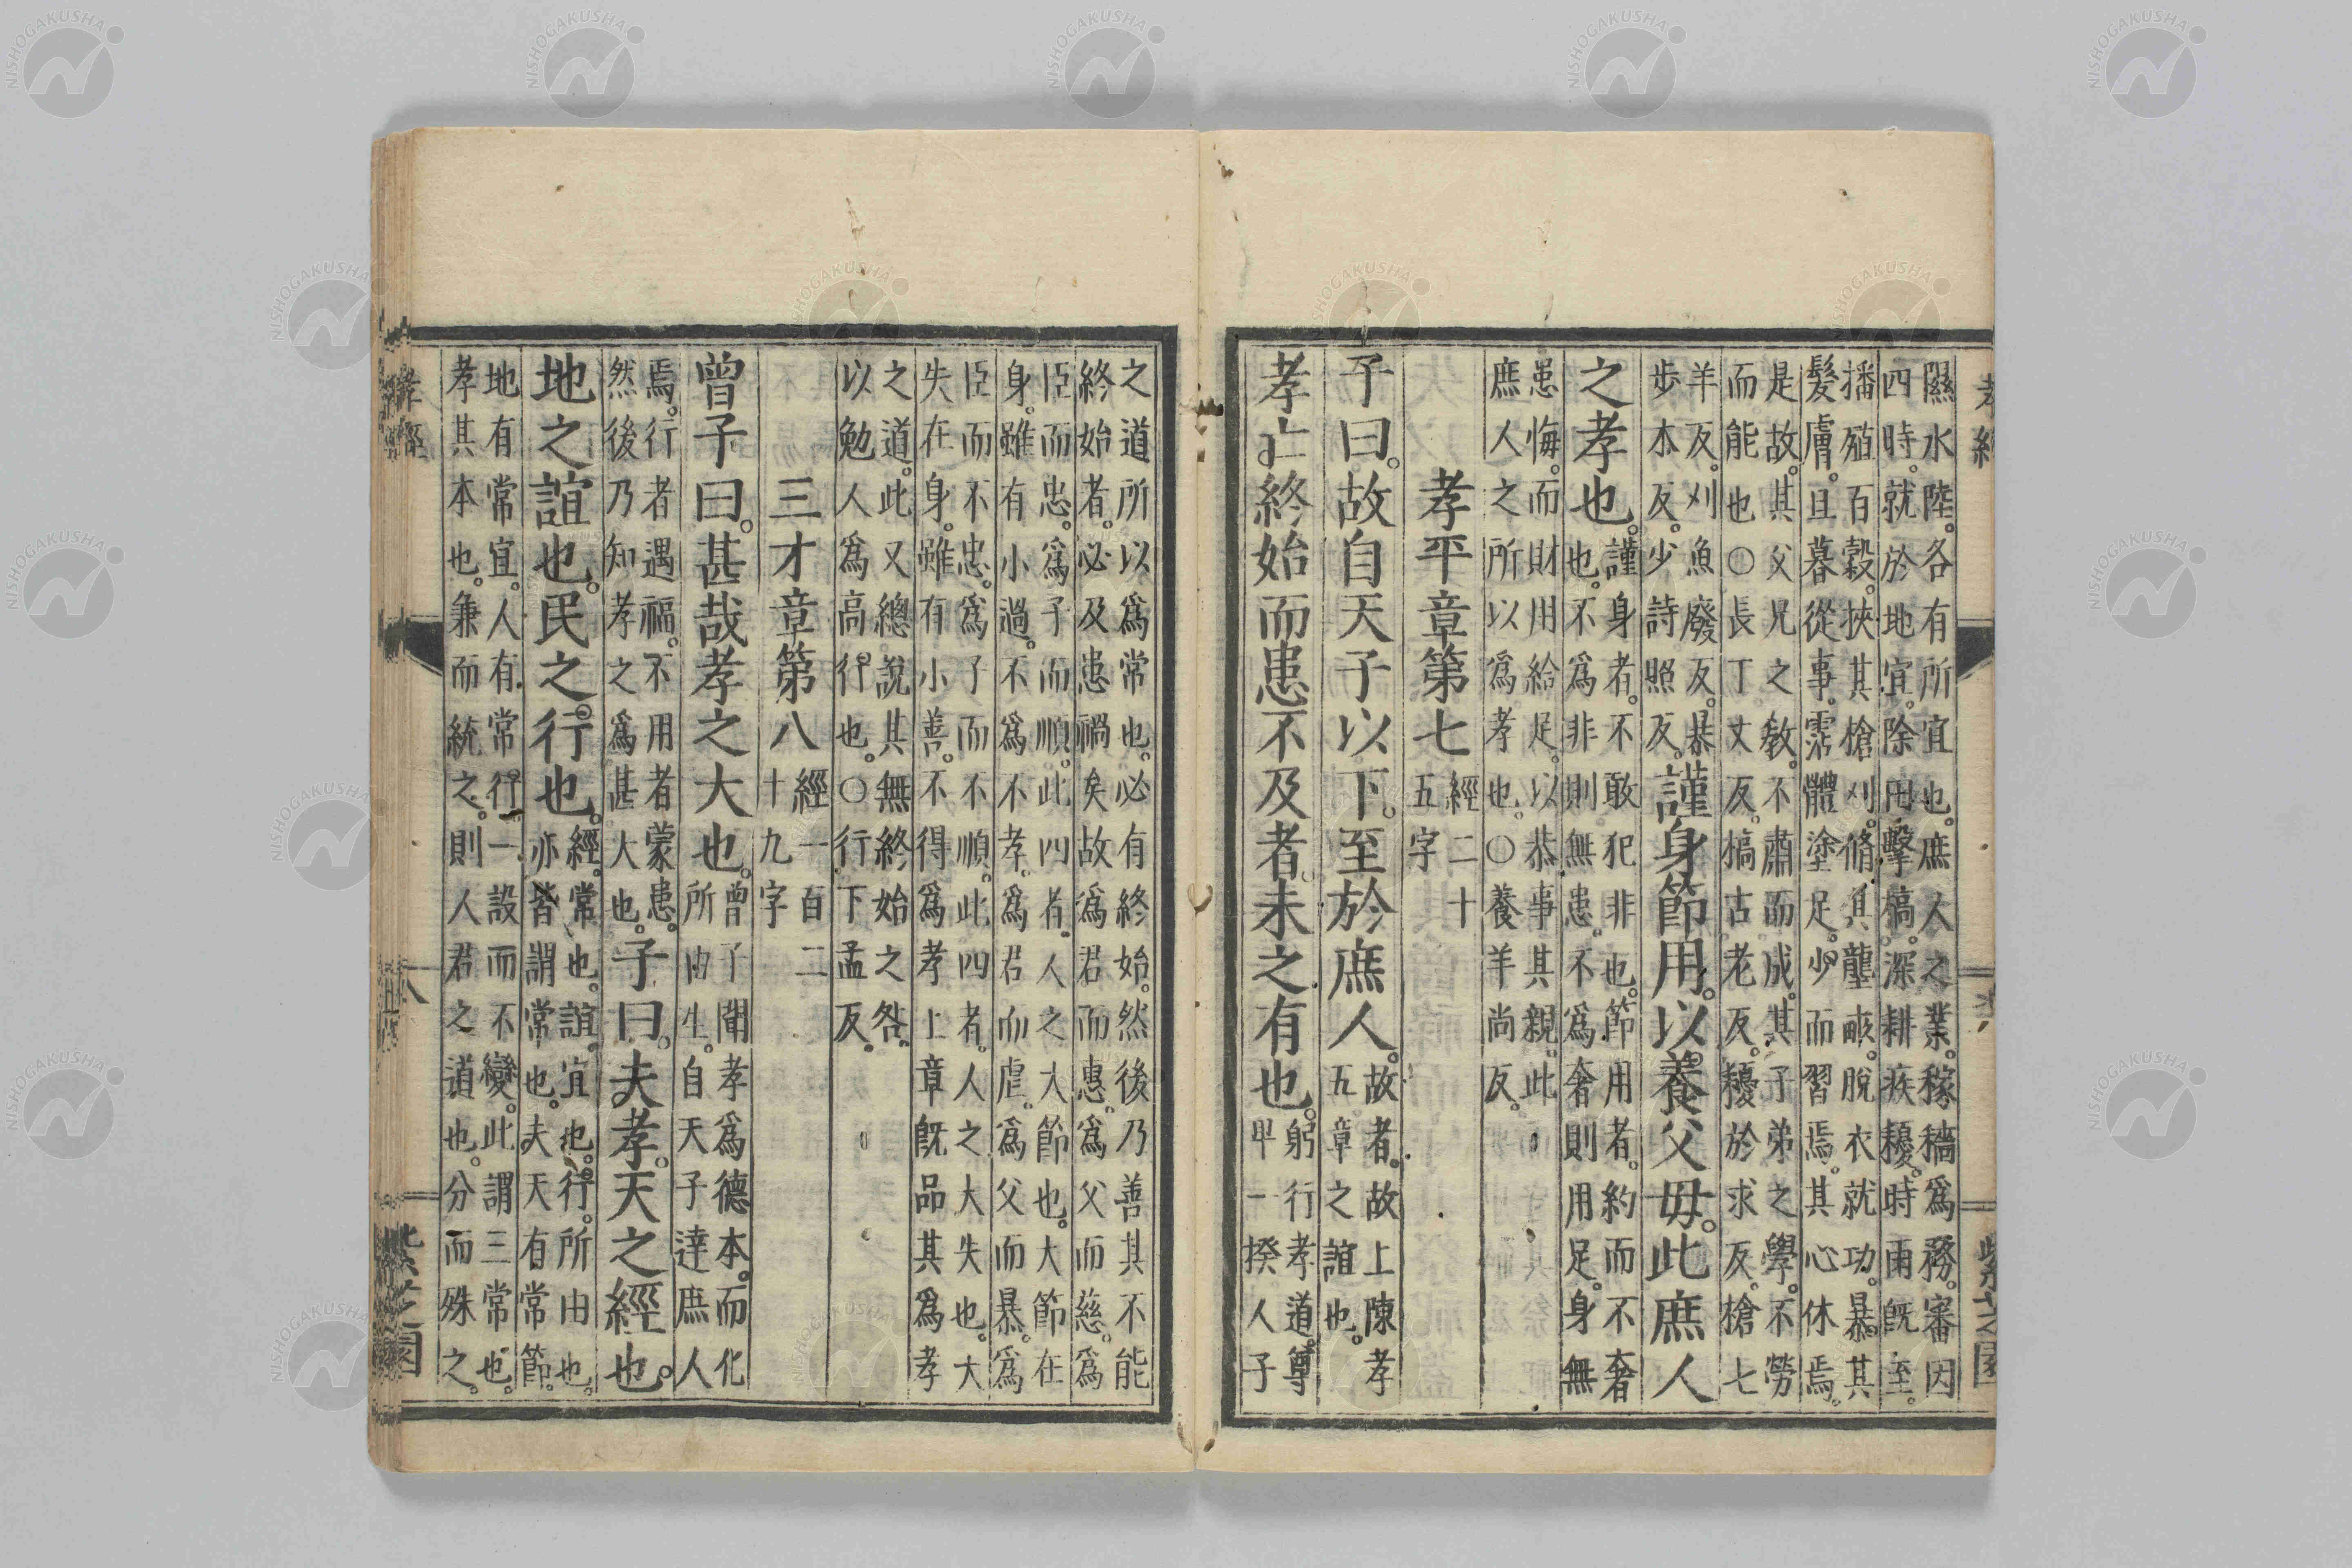 隰水陸。各有所宜也。庶人之業。稼穡爲務。審因
四時。就於地宜。除田擊槁。深耕疾耰。時雨既至。
播殖百穀。挾其槍刈。脩其壟畝。脫衣就功。暴其
髮膚。旦暮從事。霑體塗足。少而習焉。其心休焉。
是故。其父兄之敎。不肅而成。其子弟之學。不勞
而能也〇長丁丈反。槁古老反。耰於求反。槍七
羊反。刈魚廢反。暴
步木反。少詩照反。謹身節用。以養父毋。此庶人
之孝也。謹身者。不敢犯非也。節用者。約而不奢
也。不爲非則無患。不爲奢則用足。身無
患悔。而財用給足。以恭事其親。此
庶人之所以爲孝也。〇養羊尚反。
孝平章第七 經二十
五字
子曰。故自天子以下。至於庶人。故者。故上陳孝
五章之誼也。
孝亡終始而患不及者。未之有也。躬行孝道。尊
卑一揆人子
之道所以爲常也。必有終始。然後乃善其不能
終始者。必及患禍矣故爲君而惠。爲父而慈。爲
臣而忠。爲子而順。此四者。人之大節也。大節在
身。雖有小過。不爲不孝。爲君而虐。爲父而暴。爲
臣而不忠。爲子而不順。此四者。人之大失也。大
失在身。雖有小善。不得爲孝上章既品其爲孝
之道。此又總說其無終始之咎。
以勉人爲高行也。〇行下孟反。
三才章第八 經一百二
十九字
曾子曰。甚哉孝之大也。曾子聞孝爲德本。而化
所由生。自天子達庶人
焉。行者遇福。不用者蒙患。
然後乃知孝之爲甚大也。子曰。夫孝。天之經也。
地之誼也。民之行也。經。常也。誼。宜也。行。所由也。
亦皆謂常也。夫天有常節。
地有常宜。人有常行。一設而不變。此謂三常也。
孝其本也。兼而統之。則人君之道也。分而殊之。
紫芝園